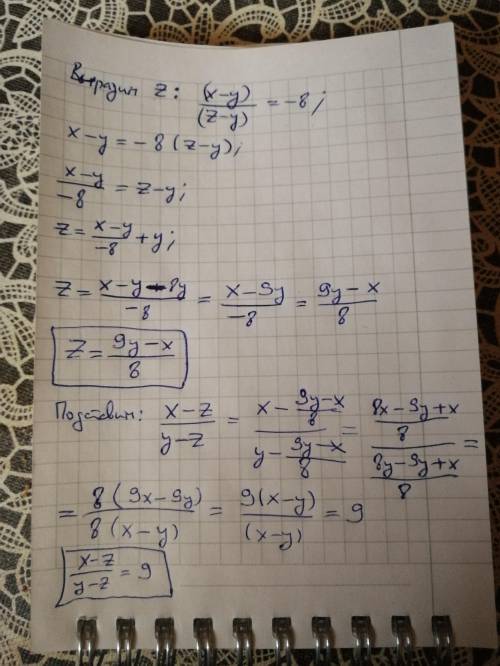 Выразим z: (x-y)/(z-y) = -8;
x-y = -8(z-y);
(x-y)/-8 = z-y;
z = (x-y)/-8 + y;
z = (x-y-8y)/-8 = (x-9y)/-8 = (9y-x)/8
z = (9y-x)/8
Подставим: (x-z)/(y-z) = (x - (9y-x)/8)/(y - (9y-x)/8) = ((8x-9y+x)/8)/((8y-9y+x)/8) =
= 8(9x-9y)/8(x-y) = 9(x-y)/(x-y) = 9
(x-z)/(y-z) = 9